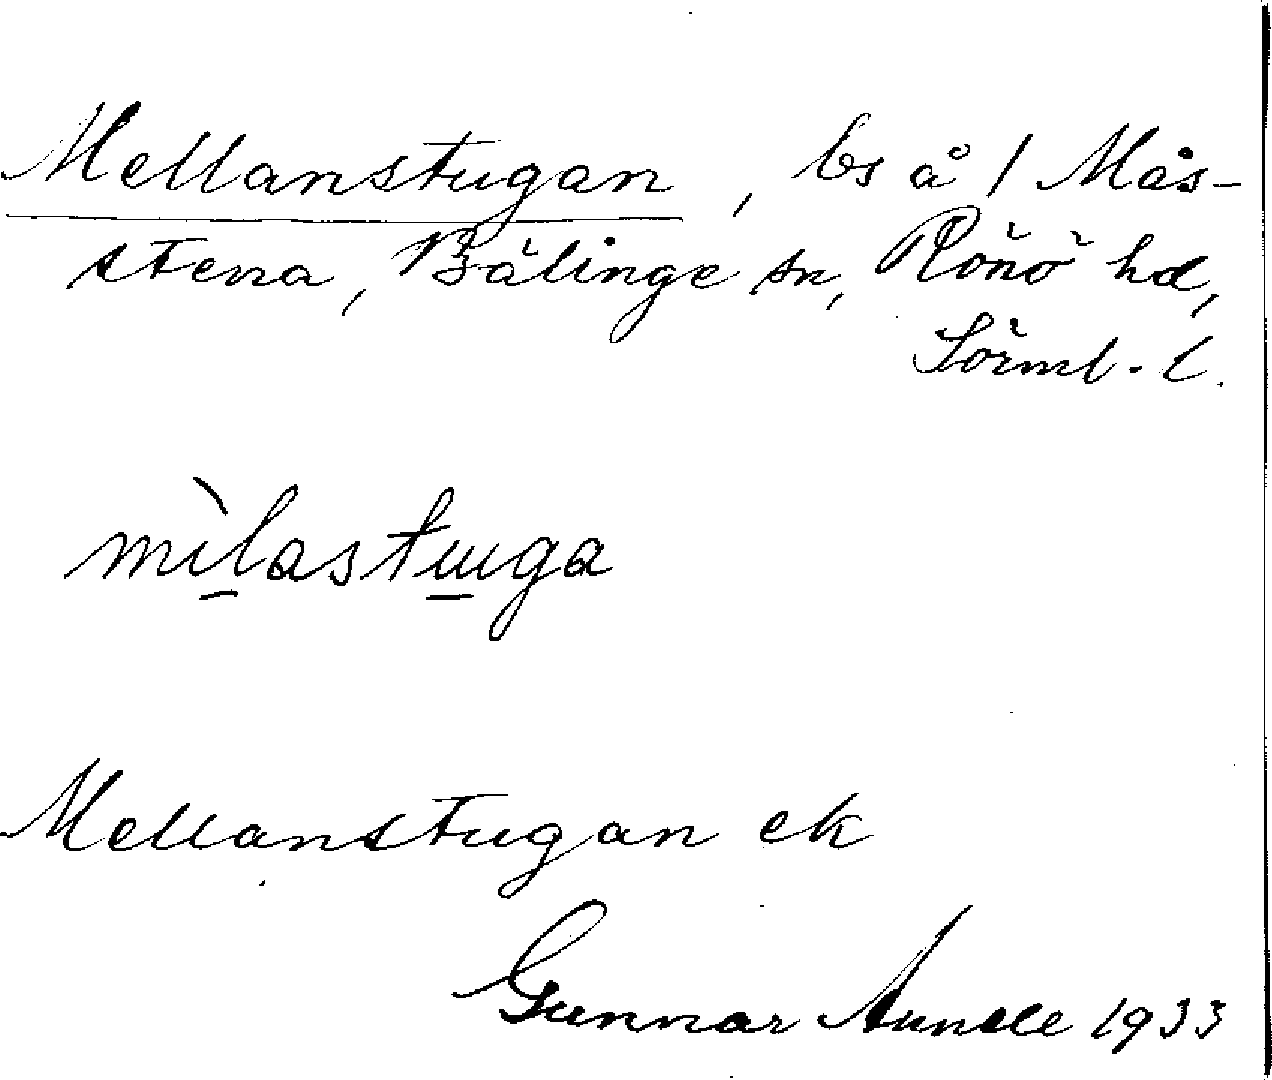 Mellanstugan, bs å 1 Mås-
stena, Bälinge sn, Rönö hd,
Sörml. l.
mìlastuga
Mellanstugan ek
Gunnar 1933